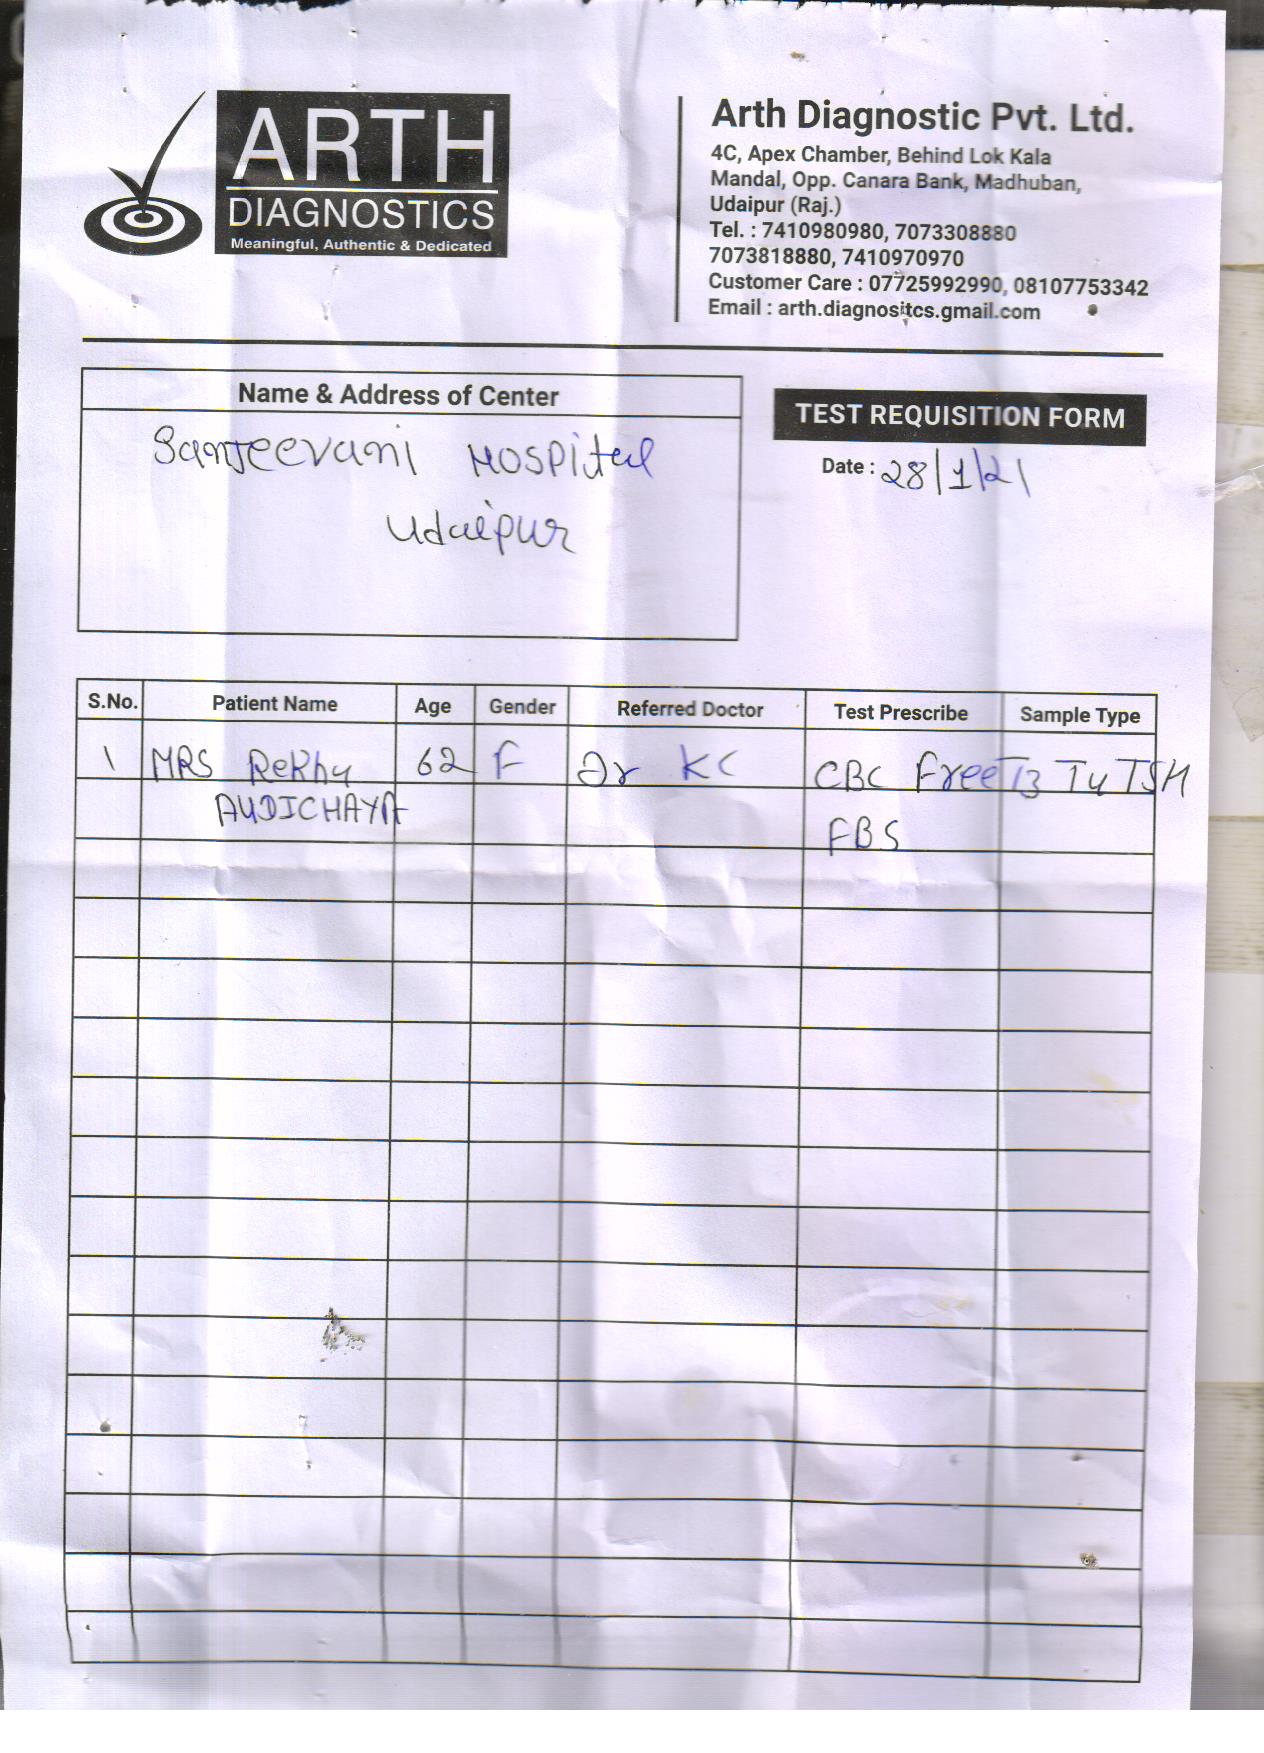 ARTH
DIAGNOSTICS
Meaningful, Authentic & Dedicated
Arth Diagnostic Pvt. Ltd.
4C, Apex Chamber, Behind Lok Kala
Mandal, Opp. Canara Bank, Madhuban,
Udaipur (Raj.)
Tel. : 7410980980, 7073308880
7073818880, 7410970970
Customer Care : 07725992990, 08107753342
Email : arth.diagnositcs.gmail.com
Name & Address of Center
Sanjeevani Hospital
Udaipur
TEST REQUISITION FORM
Date : 28/1/21
S.No. Patient Name Age Gender Referred Doctor Test Prescribe Sample Type
1 MRS Rekha 62 F Dr KC CBC Free T3 T4 TSH
AUDICHAYA FBS